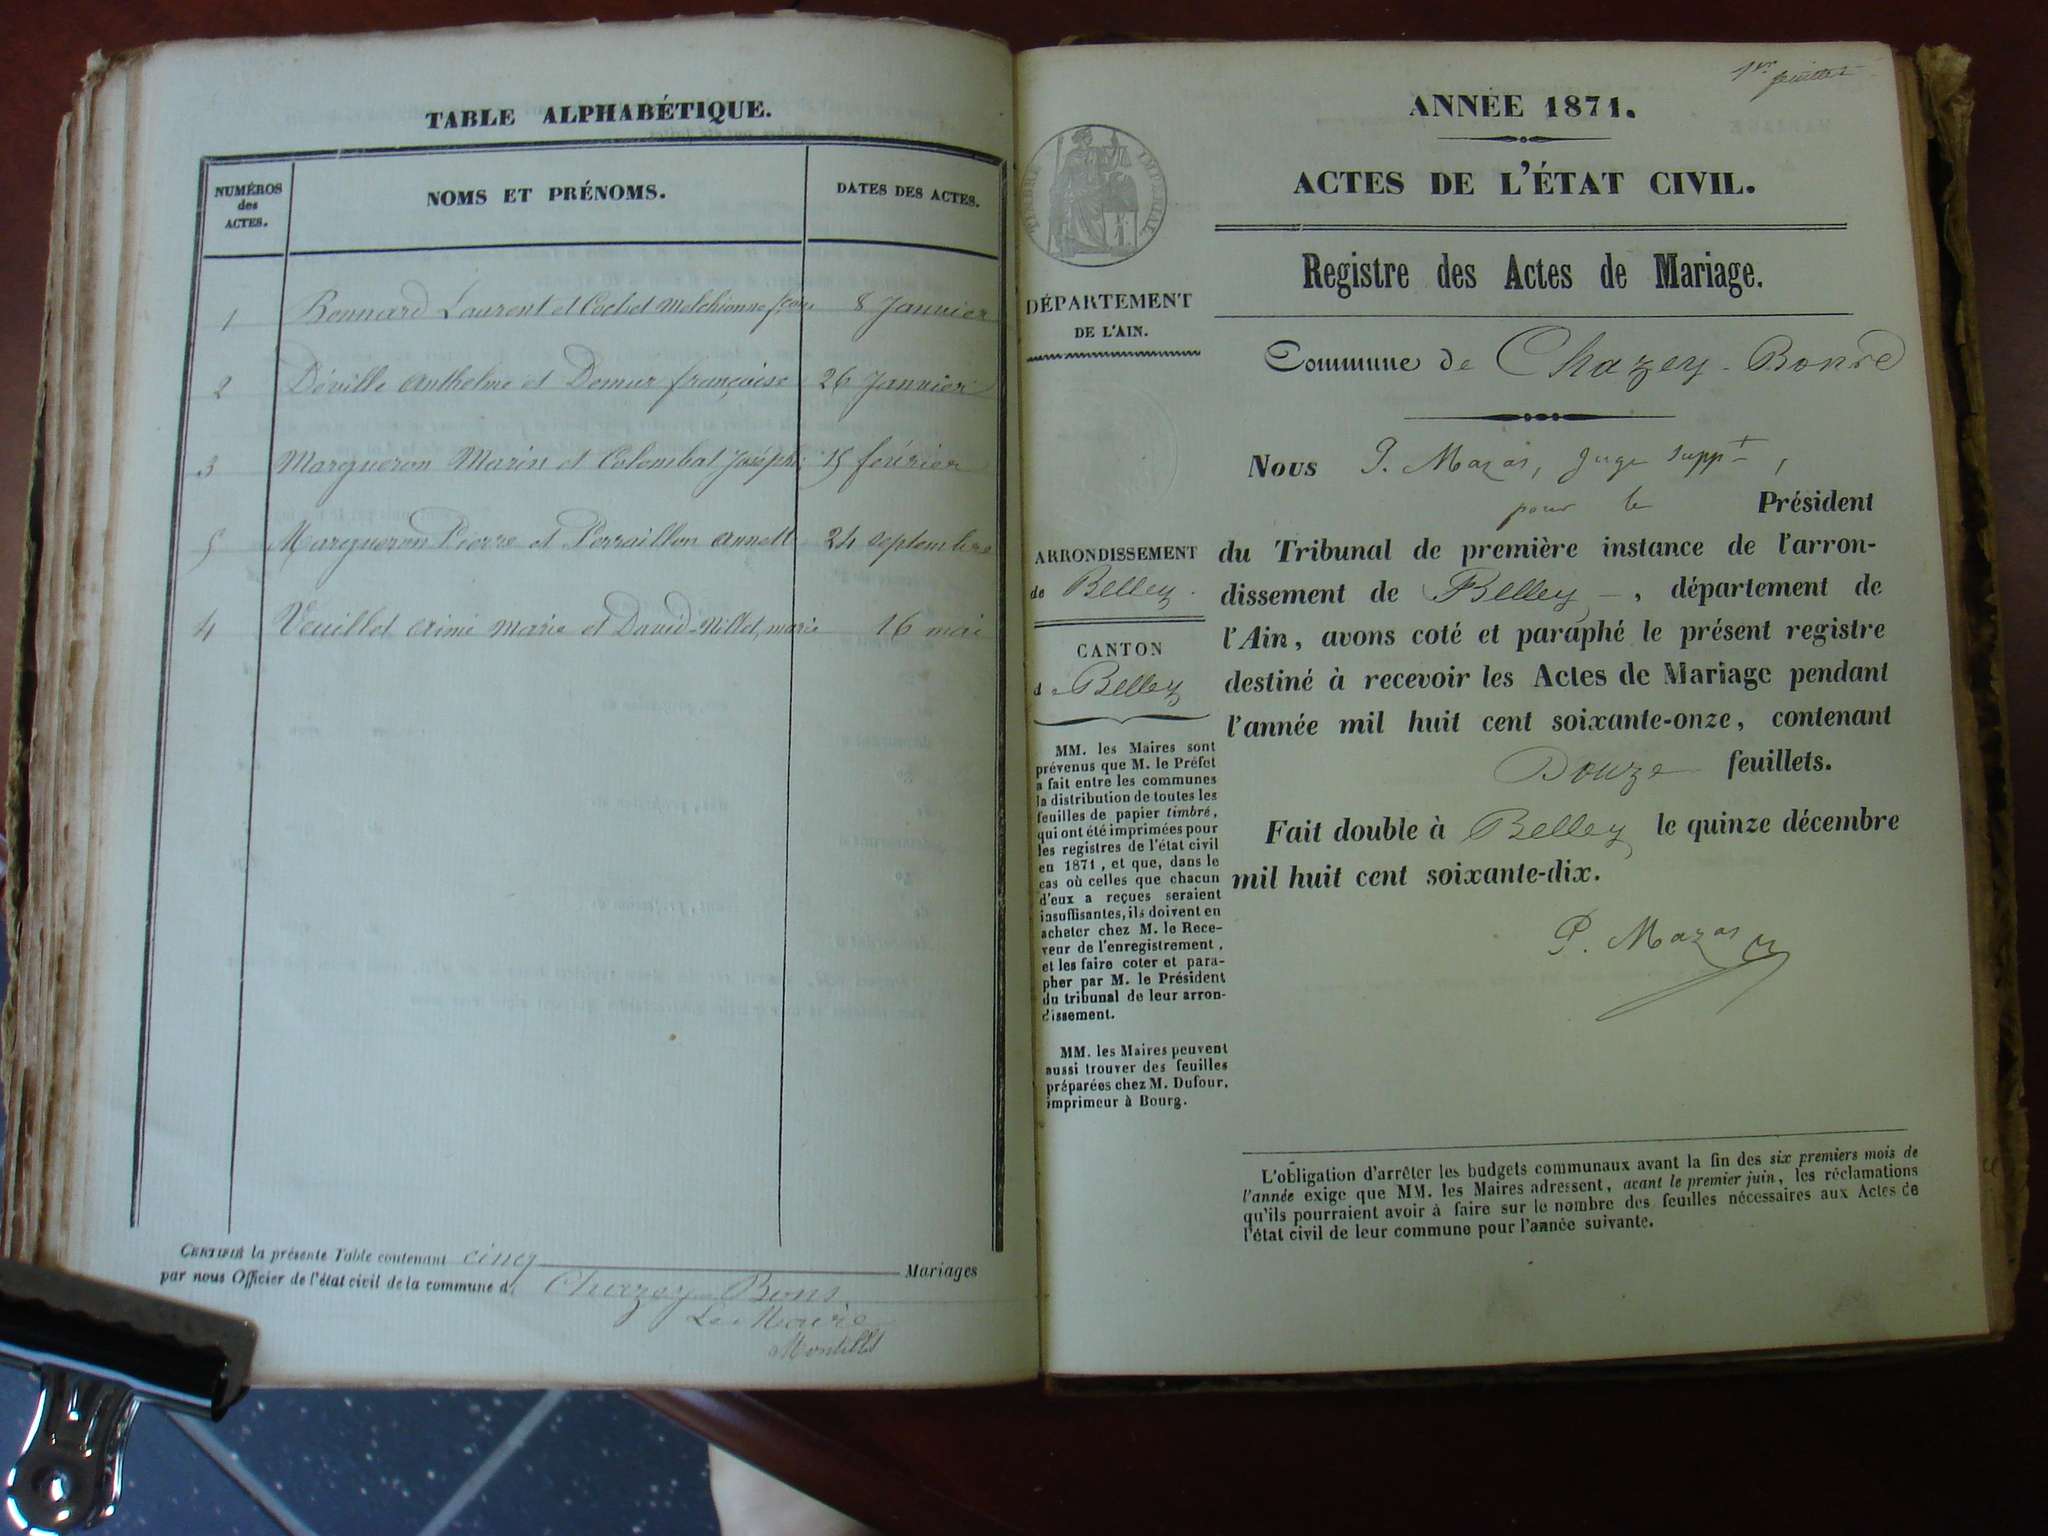 TABLE ALPHABÉTIQUE.
NUMÉROS
des
ACTES.
NOMS ET PRÉNOMS.
DATES DES ACTES.
1 Bonnard Laurent et Cochet Melchionne 8 Janvier
2 Déville Anthelme et Demur françoise 26 Janvier
3 Margueron Marin et Colombat Joséph 15 février
5 Margueron Pierre et Perraillon Annett 24 septembre
4 Veuillet Aimé Marie et David-Millet, marie 16 mai
CERTIFIÉ la présente Table contenant cinq Mariages
par nous Officier de l'état civil de la commune d Chazey Bons
Le Maire
Montillet
1er feuillet
ANNÉE 1871.
ACTES DE L'ÉTAT CIVIL.
Registre des Actes de Mariage.
TIMBRE IMPÉRIAL
DÉPARTEMENT
DE L'AIN.
ARRONDISSEMENT
de Belley.
CANTON
de Belley
MM. les Maires sont
prévenus que M. le Préfet
a fait entre les communes
la distribution de toutes les
feuilles de papier timbré,
qui ont été imprimées pour
les registres de l'état civil
en 1871, et que, dans le
cas où celles que chacun
d'eux a reçues seraient
insuffisantes, ils doivent en
acheter chez M. le Rece-
veur de l'enregistrement,
et les faire coter et para-
pher par M. le Président
du tribunal de leur arron-
dissement.
MM. les Maires peuvent
aussi trouver des feuilles
préparées chez M. Dufour,
imprimeur à Bourg.
Commune de Chazey-Bons
Nous P. Mazas, Juge suppt,
pour le Président
du Tribunal de première instance de l'arron-
dissement de Belley, département de
l'Ain, avons coté et paraphé le présent registre
destiné à recevoir les Actes de Mariage pendant
l'année mil huit cent soixante-onze, contenant
Douze feuillets.
Fait double à Belley le quinze décembre
mil huit cent soixante-dix.
P. Mazas
L'obligation d'arrêter les budgets communaux avant la fin des six premiers mois de
l'année exige que MM. les Maires adressent, avant le premier juin, les réclamations
qu'ils pourraient avoir à faire sur le nombre des feuilles nécessaires aux Actes de
l'état civil de leur commune pour l'année suivante.